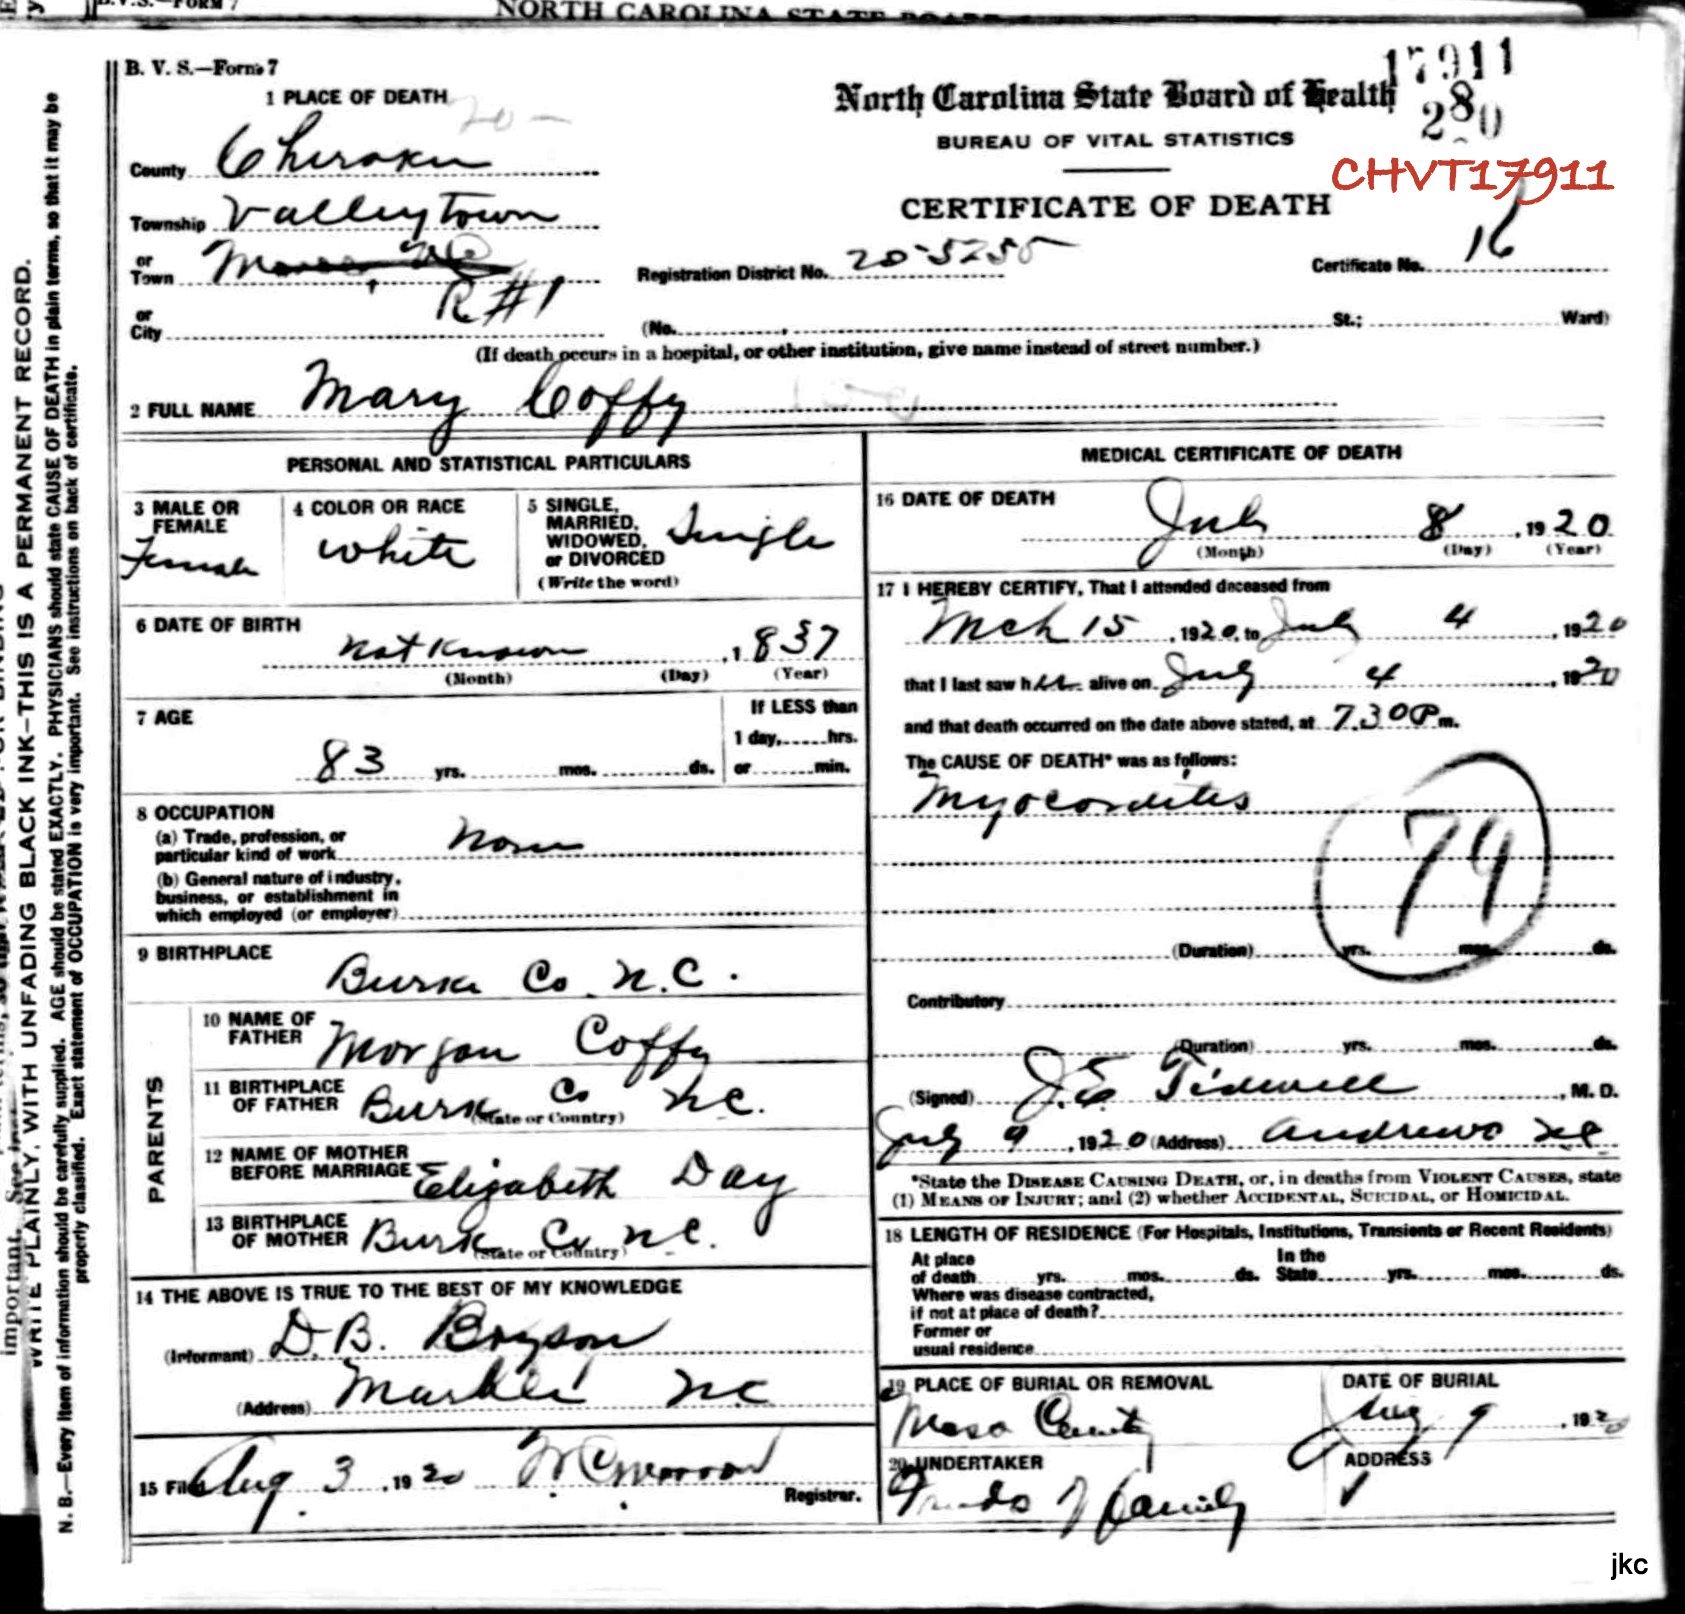 B.V.S.—FORM 7
NORTH CAROLINA STATE BOARD
B. V. S.—Form 7
17911
280
CHVT17911
1 PLACE OF DEATH
20-
North Carolina State Board of Health
BUREAU OF VITAL STATISTICS
CERTIFICATE OF DEATH
County Cherokee
Township Valleytown
or Town
R#1
Registration District No. 20-5255
Certificate No. 16
or City
(No. St.; Ward)
(If death occurs in a hospital, or other institution, give name instead of street number.)
2 FULL NAME Mary Coffy
PERSONAL AND STATISTICAL PARTICULARS
3 MALE OR FEMALE
Female
4 COLOR OR RACE
White
5 SINGLE, MARRIED, WIDOWED, or DIVORCED
(Write the word)
Single
6 DATE OF BIRTH
Not Known , 1837
(Month) (Day) (Year)
7 AGE
83 yrs. mos. ds.
If LESS than
1 day, hrs.
or min.
8 OCCUPATION
(a) Trade, profession, or
particular kind of work None
(b) General nature of industry,
business, or establishment in
which employed (or employer)
9 BIRTHPLACE
Burke Co. N.C.
PARENTS
10 NAME OF FATHER Morgan Coffy
11 BIRTHPLACE OF FATHER Burk Co N.C.
(State or Country)
12 NAME OF MOTHER BEFORE MARRIAGE Elizabeth Day
13 BIRTHPLACE OF MOTHER Burk Co N.C.
(State or Country)
14 THE ABOVE IS TRUE TO THE BEST OF MY KNOWLEDGE
(Informant) D.B. Bryson
(Address) Marble NC
15 Filed Aug 3, 1920
Registrar.
MEDICAL CERTIFICATE OF DEATH
16 DATE OF DEATH
July 8, 1920
(Month) (Day) (Year)
17 I HEREBY CERTIFY, That I attended deceased from
Mch 15, 1920, to July 4, 1920
that I last saw her alive on July 4, 1920
and that death occurred on the date above stated, at 7.30 P m.
The CAUSE OF DEATH* was as follows:
Myocordites
79
(Duration) yrs. mos. ds.
Contributory
(Duration) yrs. mos. ds.
(Signed) J.E. Tidwell, M. D.
July 9, 1920 (Address) Andrews NC
*State the DISEASE CAUSING DEATH, or, in deaths from VIOLENT CAUSES, state
(1) MEANS OF INJURY; and (2) whether ACCIDENTAL, SUICIDAL, or HOMICIDAL.
18 LENGTH OF RESIDENCE (For Hospitals, Institutions, Transients or Recent Residents)
At place In the
of death yrs. mos. ds. State yrs. mos. ds.
Where was disease contracted,
if not at place of death?
Former or
usual residence
19 PLACE OF BURIAL OR REMOVAL
DATE OF BURIAL
Aug 9, 1920
20 UNDERTAKER
ADDRESS
Family
WRITE PLAINLY, WITH UNFADING BLACK INK—THIS IS A PERMANENT RECORD.
N. B.—Every item of information should be carefully supplied. AGE should be stated EXACTLY. PHYSICIANS should state CAUSE OF DEATH in plain terms, so that it may be
properly classified. Exact statement of OCCUPATION is very important. See instructions on back of certificate.
jkc